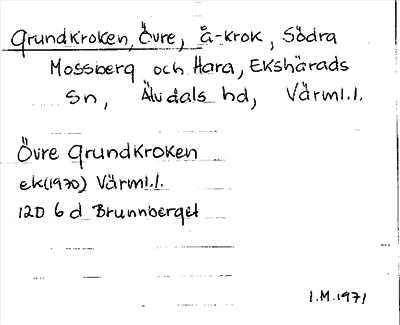 Grundkroken, Övre, å-krok, Södra
Mossberg och Hara, Ekshärads
Sn, Älvdals hd, Värml.l.
Övre Grundkroken
ek(1970) Värml.l.
12D 6d Brunnberget
I.M.1971